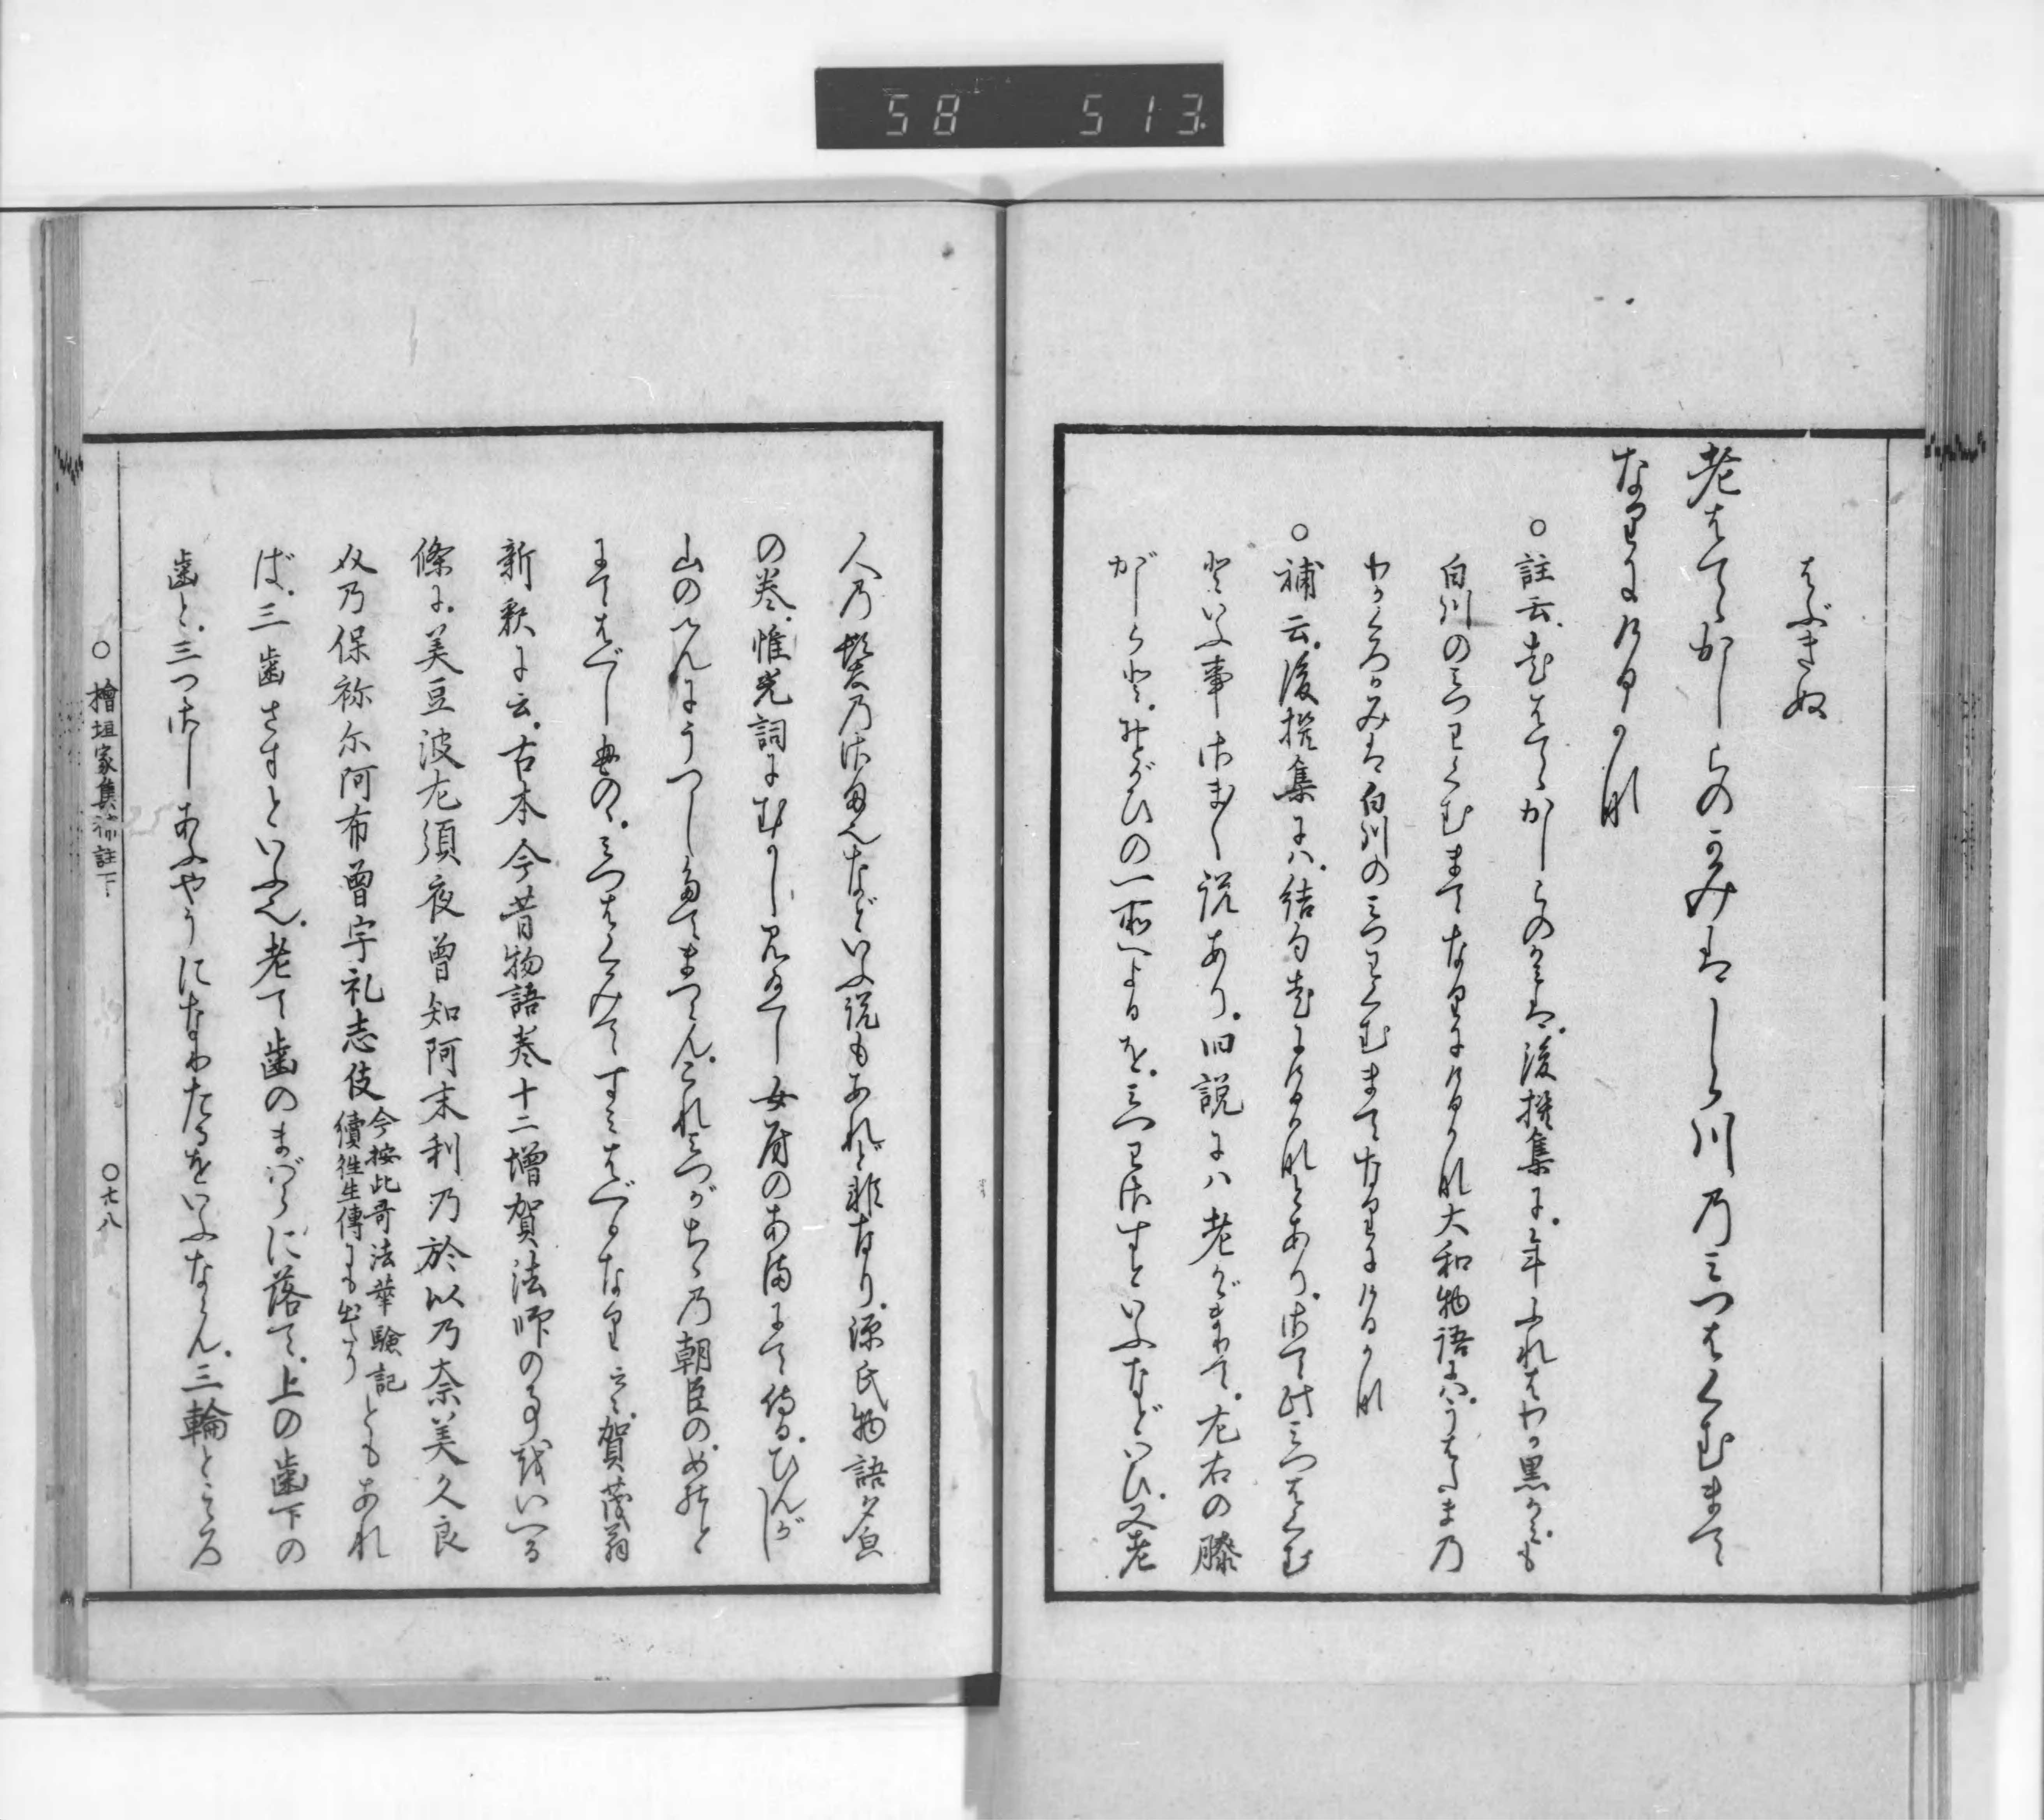 58 513
はぶきぬ
老はてゝかしらのかみはしら川乃みつはくむまて
なりにけるかな
○註云老はてゝかしらのかみは後撰集に年ふれはわか黒かみも
白川のみつはくむまてなりにけるかな大和物語にハうはたま乃
わかくろかみは白川のみつはくむまてなりにけるかな
○補云後撰集にハ結句老にけるかなとあり さて此みつはくむ
といふ事さま〱説あり 旧説にハ老かゞまりて左右の膝
がしらと おとがひの一所へよるを みつわさすといふなどいひ 又老
人乃髪乃さまなどいふ説もあれど非なり 源氏物語夕皃
の巻 惟光詞にむかし見給へし女房のあまにて侍る ひんがし
山のへんにうつし奉てまつらん これみつがちゝ乃朝臣の めのと
にてはべしものゝ みつはくみてすみはべるなり云々 賀茂翁
新釈に云 古本今昔物語巻十二増賀法師の事を以いへる
條に 美豆波左須夜曽知阿末利乃於以乃奈美久良
久乃保祢尓阿布曽宇礼志伎 今按此哥法華驗記續徃生傳にも出たり ともあれ
ば 三歯さすといふハ 老て歯のまばらに落て 上の歯下の
歯と 三つさしあふやうになりたるをいふならん 三輪とこゝろ
○檜垣家集補註下 ○七八